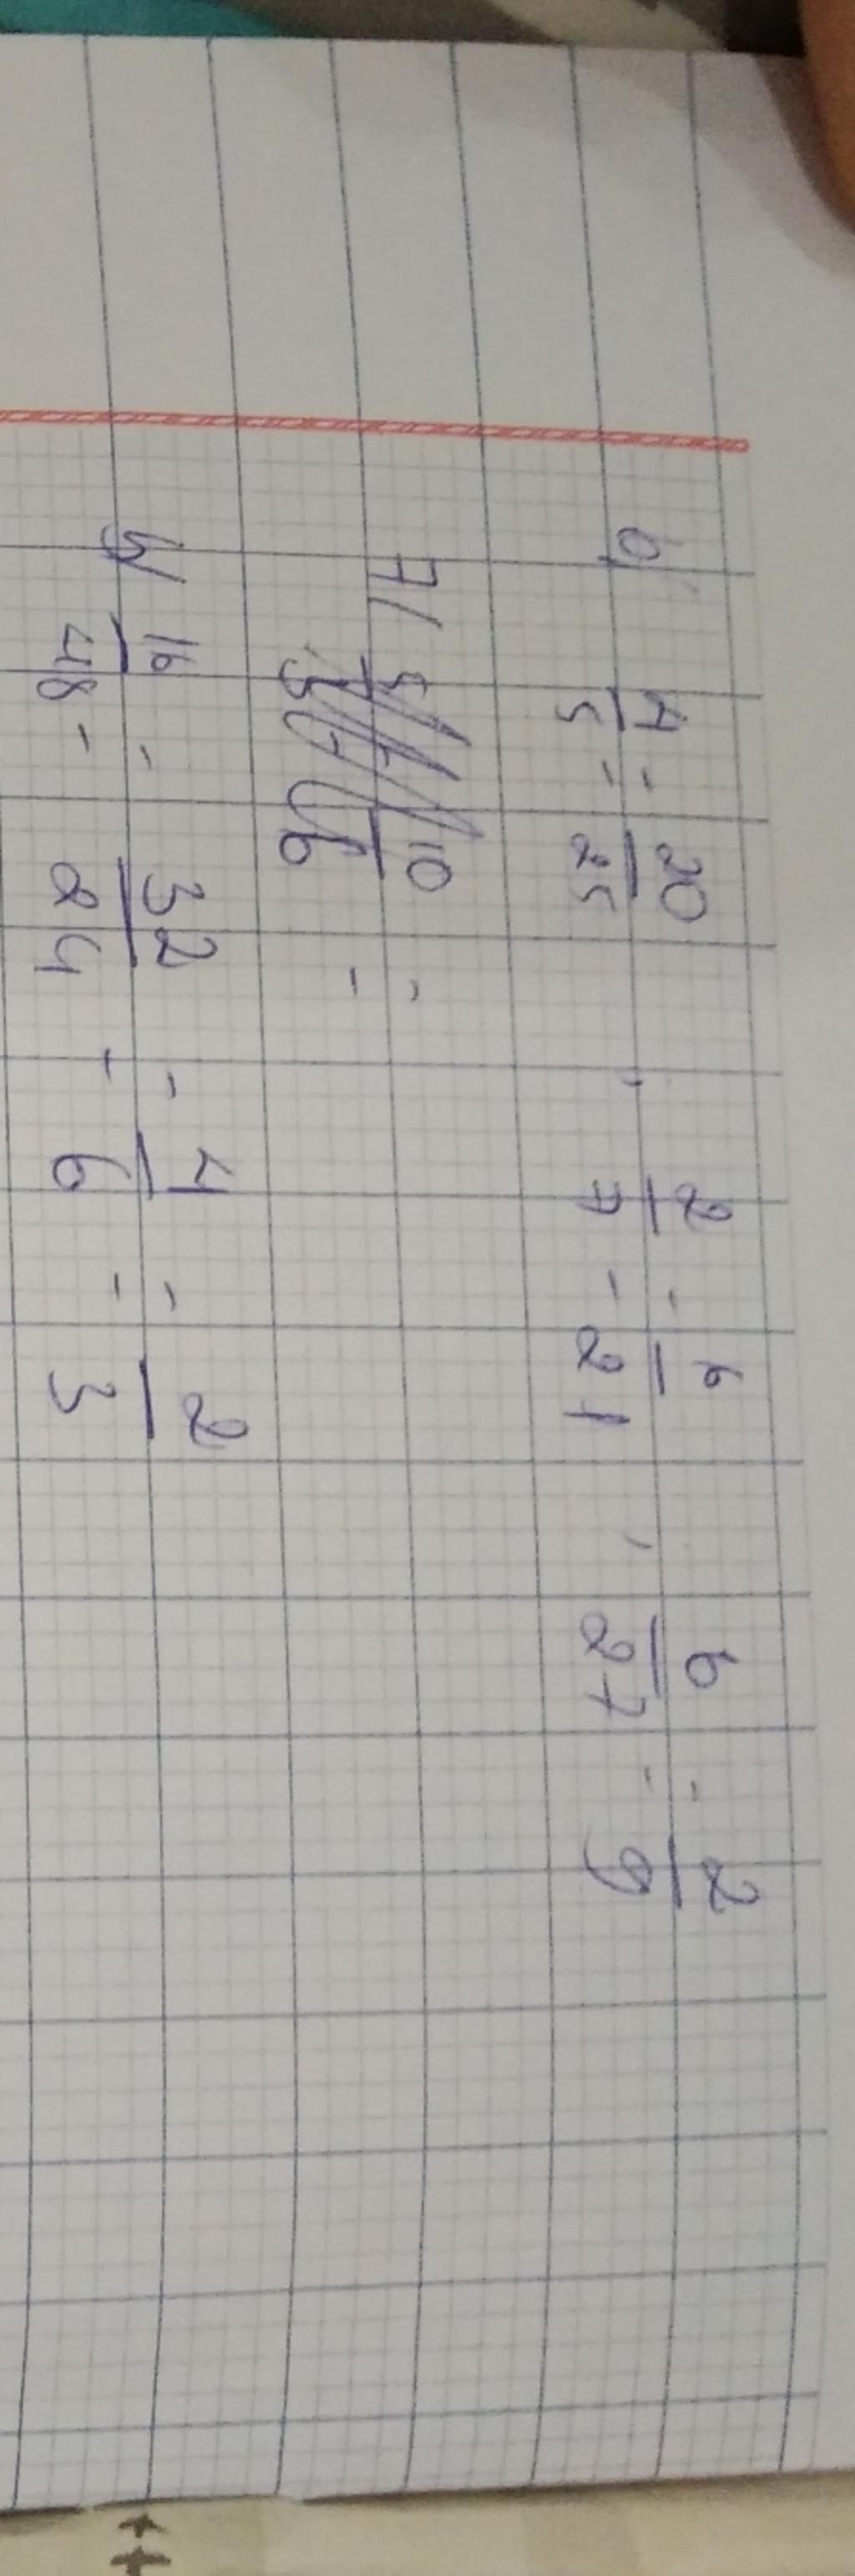 6/ 4/5 = 20/25 , 2/7 = 6/21 , 6/27 = 2/9
7/ 10/6 =
5/ 16/48 = 32/24 = 4/6 = 2/3